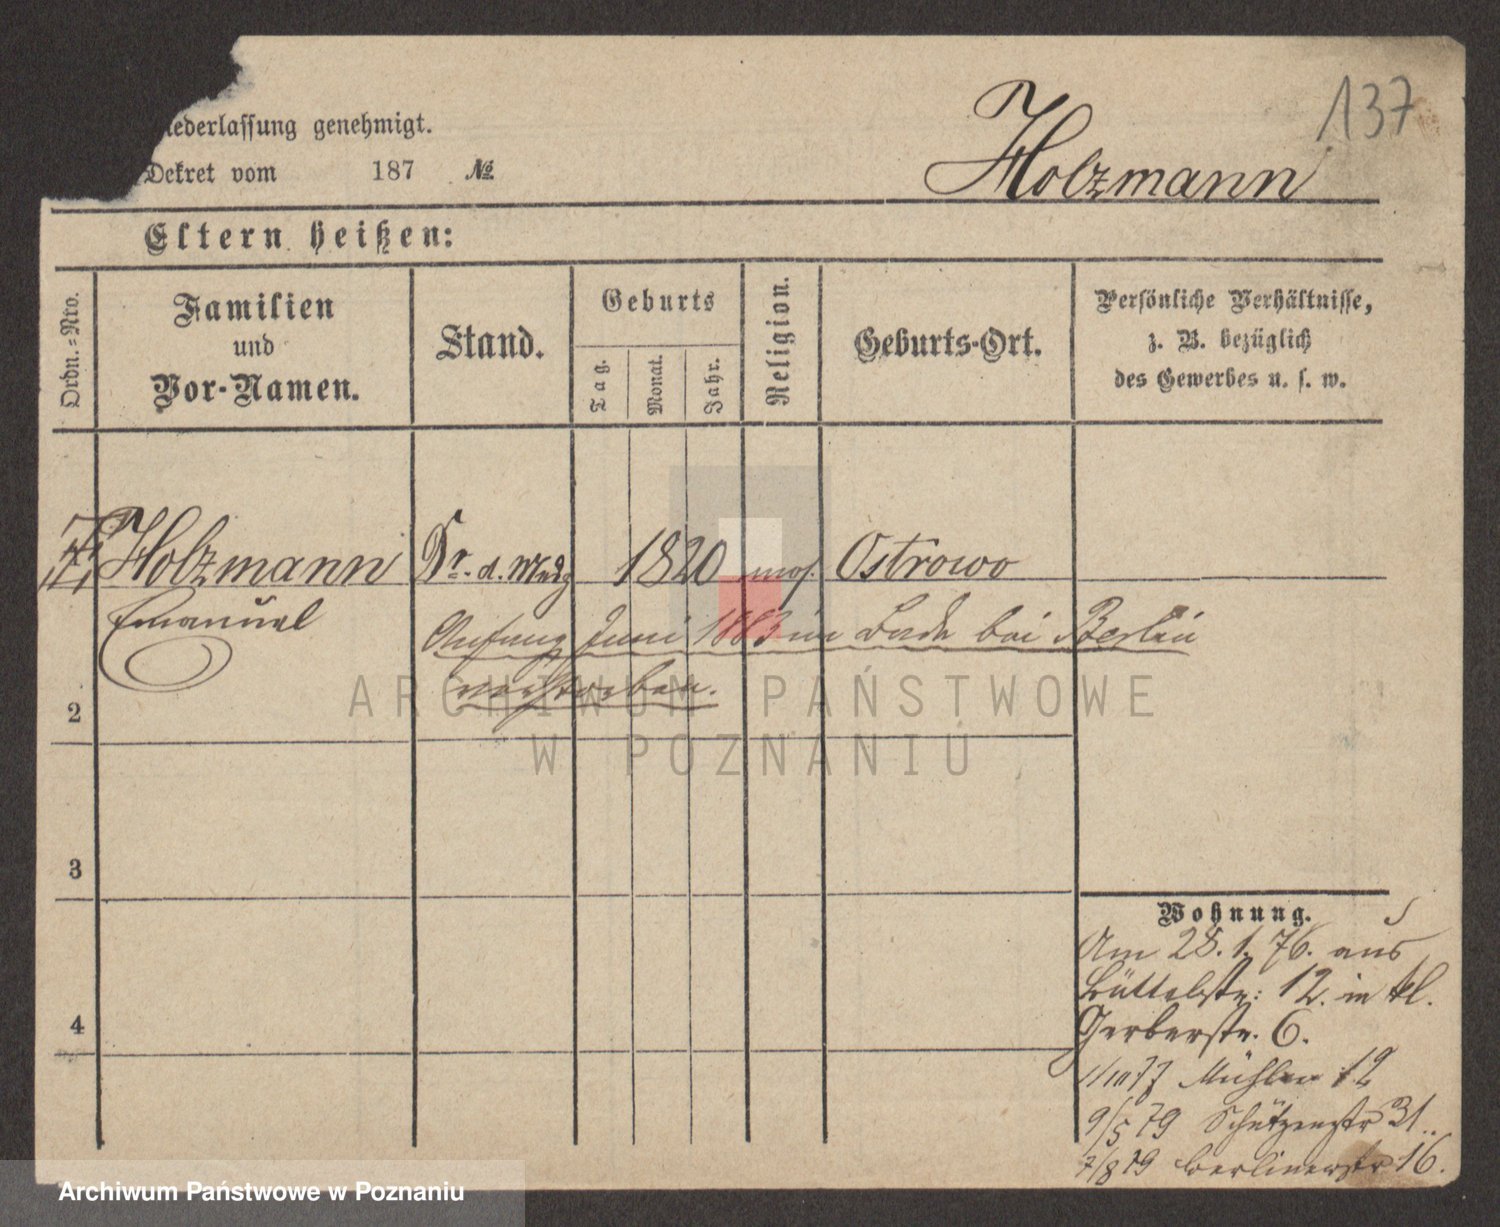 137
iederlassung genehmigt.
Dekret vom 187 №
Holzmann
Eltern heißen:
Ordn.-Nro.
Familien
und
Vor-Namen.
Stand.
Geburts
Tag.
Monat.
Jahr.
Religion.
Geburts-Ort.
Persönliche Verhältnisse,
z. B. bezüglich
des Gewerbes u. s. w.
Holzmann Dr. d. Medz 1820 mos. Ostrowo
Emanuel
Anfang Juni 1883 in bei Berlin
verstorben.
2
3
4
Wohnung.
Am 28.1.76. aus
Büttelstr: 12. in kl.
Gerberstr. 6.
1/10 77 Mühlen 12
9/5 79 Schützenstr 31.
7/8 79 Berlinerstr 16.
ARCHIWUM PAŃSTWOWE
W POZNANIU
Archiwum Państwowe w Poznaniu